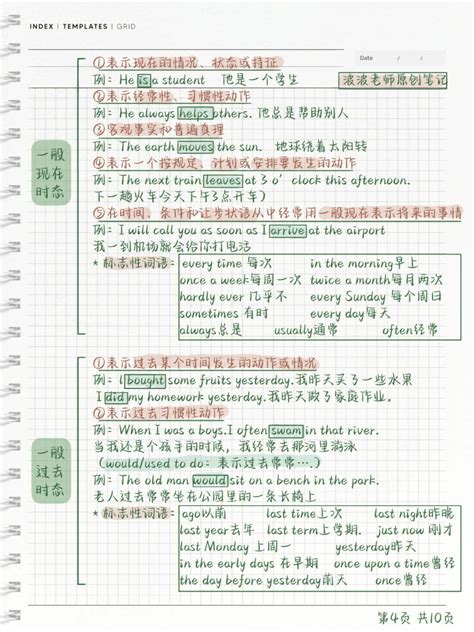 INDEX | TEMPLATES | GRID
Date / /
①表示现在的情况、状态或特征
例：He is a student 他是一个学生
浪浪老师原创笔记
②表示经常性、习惯性动作
例：He always helps others. 他总是帮助别人
③客观事实和普遍真理
例：The earth moves the sun. 地球绕着太阳转
④表示一个按规定、计划或安排要发生的动作
例：The next train leaves at 3 o'clock this afternoon.
下一趟火车今天下午3点开车）
⑤在时间、条件和让步状语从中经常用一般现在表示将来的事情
例：I will call you as soon as I arrive at the airport
我一到机场就会给你打电话
一般
现在
时态
* 标志性词语：
every time 每次 in the morning早上
once a week每周一次 twice a month每月两次
hardly ever 几乎不 every Sunday 每个周日
sometimes 有时 every day每天
always总是 usually通常 often经常
①表示过去某个时间发生的动作或情况
例：I bought some fruits yesterday.我昨天买了一些水果
I did my homework yesterday.我昨天做了家庭作业。
②表示过去习惯性动作
例：When I was a boys.I often swam in that river.
当我还是个孩子的时候，我经常去那河里游泳
（would/used to do：表示过去常常…）
例：The old man would sit on a bench in the park.
老人过去常常坐在公园里的一条长椅上
一般
过去
时态
* 标志性词语：
ago以前 last time上次 last night昨晚
last year去年 last term上学期. just now 刚才
last Monday 上周一 yesterday昨天
in the early days 在早期 once upon a time曾经
the day before yesterday前天 once曾经
第4页 共10页